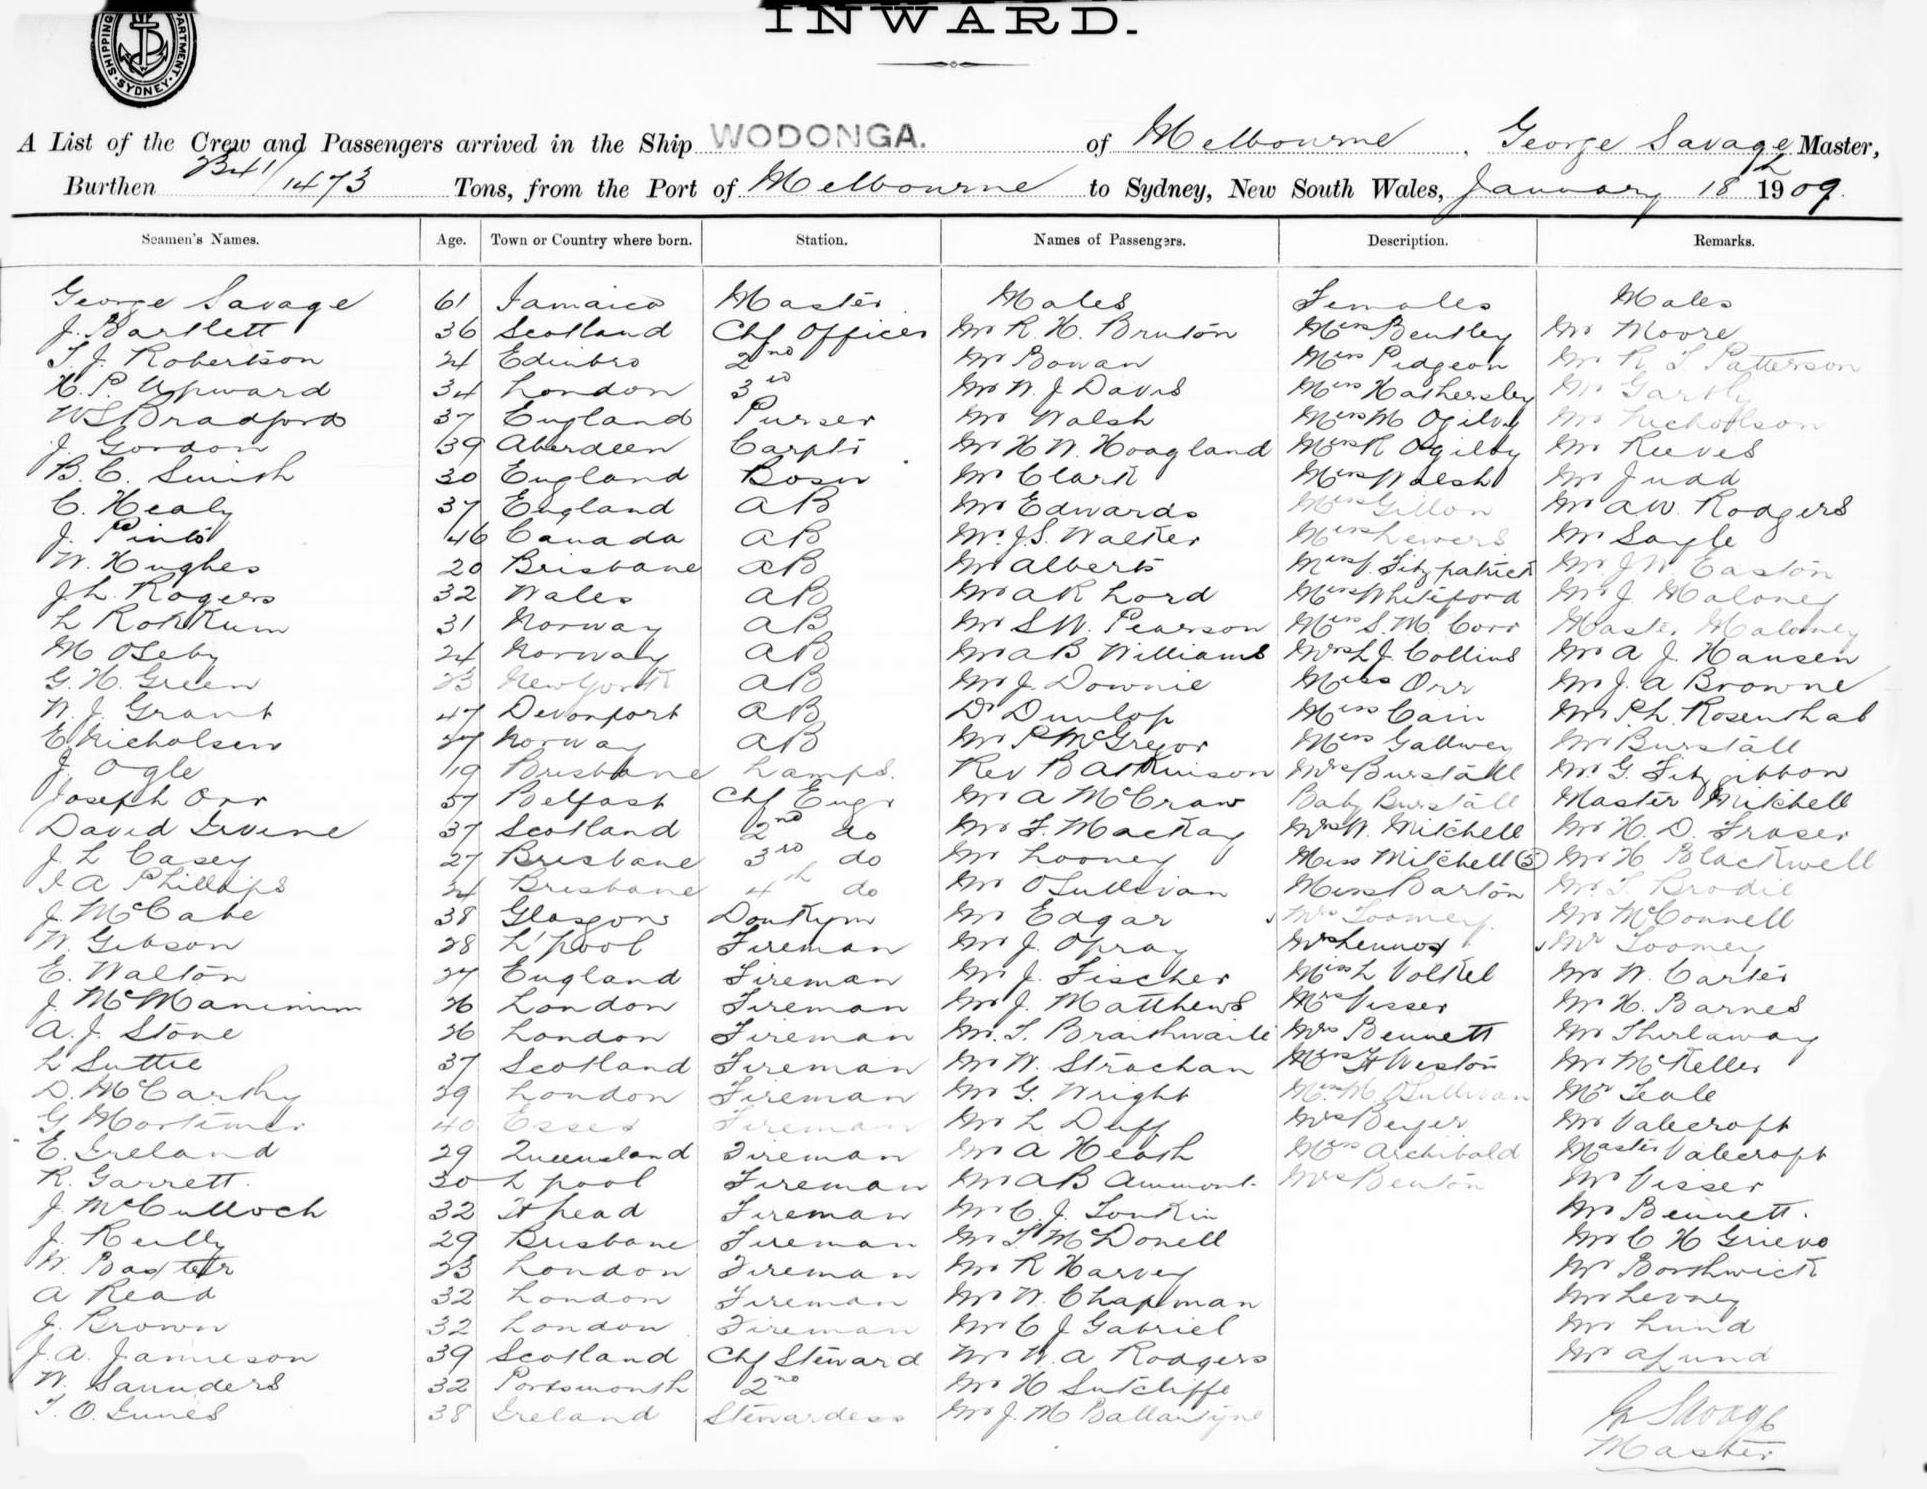 INWARD.
SHIPPING DEPARTMENT. SYDNEY
A List of the Crew and Passengers arrived in the Ship WODONGA. of Melbourne, George Savage Master,
Burthen 2341/1473 Tons, from the Port of Melbourne to Sydney, New South Wales, January 18th 1909.
Seamen's Names. Age. Town or Country where born. Station. Names of Passengers. Description. Remarks.
George Savage 61 Jamaica Master Males Females Males
J. Bartlett 36 Scotland Chf Officer Mr R. H. Bruton Miss Bentley Mr Moore
T. J. Robertson 24 Edinbro 2nd Mr Bowan Miss Pidgeon Mr R. T. Patterson
H. P. Upward 34 London 3rd Mr W. J Davis Miss Hathersley Mr Gartly
W S Bradford 37 England Purser Mr Walsh Miss M Ogilvy Mr Nicholson
J. Gordon 39 Aberdeen Carptr Mr H W. Hoagland Miss R Ogilby Mr Reeves
B. C. Smith 30 England Bosn Mr Clark Miss Walsh Mr Judd
C. Healy 37 England AB Mr Edwards Miss Gillon Mr A W. Rodgers
J. Pinto 46 Canada AB Mr J. S. Walker Miss Lewers Mr Sayle
W. Hughes 20 Brisbane AB Mr Alberts Miss J. Fitzpatrick Mr J W Easton
J L. Rogers 32 Wales AB Mr A R Lord Miss Whiteford Mr J. Maloney
L Rokkum 31 Norway AB Mr S W. Pearson Miss S. M. Corr Master Maloney
M Oseby 24 Norway AB Mr A B Williams Mrs L J. Collins Mr A J. Hansen
G. H. Green 23 New York AB Mr J. Downie Miss Orr Mr J. A Browne
W. J. Grant 47 Devonport AB Dr Dunlop Miss Cain Mr P. L. Rosenthal
E Nicholsen 27 Norway AB Mr P McGregor Miss Gallwey Mr Burstall
J. Ogle 19 Brisbane Lamps. Rev B Atkinson Mrs Burstall Mr G. Fitzgibbon
Joseph Orr 57 Belfast Chf Engr Mr A McCraw Baby Burstall Master Mitchell
David Irvine 37 Scotland 2nd do Mr F. MacKay Mrs W. Mitchell Mr H. D. Fraser
J. L Casey 27 Brisbane 3rd do Mr Looney Miss Mitchell (3) Mr H Blackwell
J A Phillips 24 Brisbane 4th do Mr O'Sullivan Miss Barton Mr T. Brodie
J. McCabe 38 Glasgow Donkymn Mr Edgar Mrs Toomey Mr McConnell
W. Gibson 28 L'pool Fireman Mr J. Opray Mrs Lennox Mr Toomey
E. Walton 27 England Fireman Mr J. Fischer Miss L Volkel Mr W. Carter
J. McManimim 26 London Fireman Mr J. Matthews Mrs Visser Mr H. Barnes
A. J. Stone 26 London Fireman Mr. T. Braithwaite Mrs Bennett Mr Thirlaway
L Suttie 37 Scotland Fireman Mr W. Strachan Miss H Weston Mr McKeller
D. McCarthy 29 London Fireman Mr G. Wright Miss M. O'Sullivan Mr Teale
G Mortimer 40 Essex Fireman Mr L Duff Mrs Beyer Mr Valecroft
E. Ireland 29 Queensland Fireman Mr A Heath Miss Archibald Master Valecroft
R. Garrett. 30 L pool Fireman Mr A B Ammont. Mrs Benton Mr Visser
J. McCulloch 32 H head Fireman Mr C. J. Tonkin Mr Bennett.
J. Reilly 29 Brisbane Fireman Mr T McDonell Mr C H Grieve
W. Baxter 23 London Fireman Mr R Harvey Mr Borthwick
A Read 32 London Fireman Mr W. Chapman Mr Levney
J. Brown 32 London Fireman Mr C J Gabriel Mr Lund
J. A. Jamieson 39 Scotland Chf Steward Mr W. A Rodgers Mr A Lund
W. Saunders 32 Portsmouth 2nd Mr H Sutcliffe
T. O. Gunes 38 Ireland Stewardess Mr J. M Ballantyne
G Savage
Master